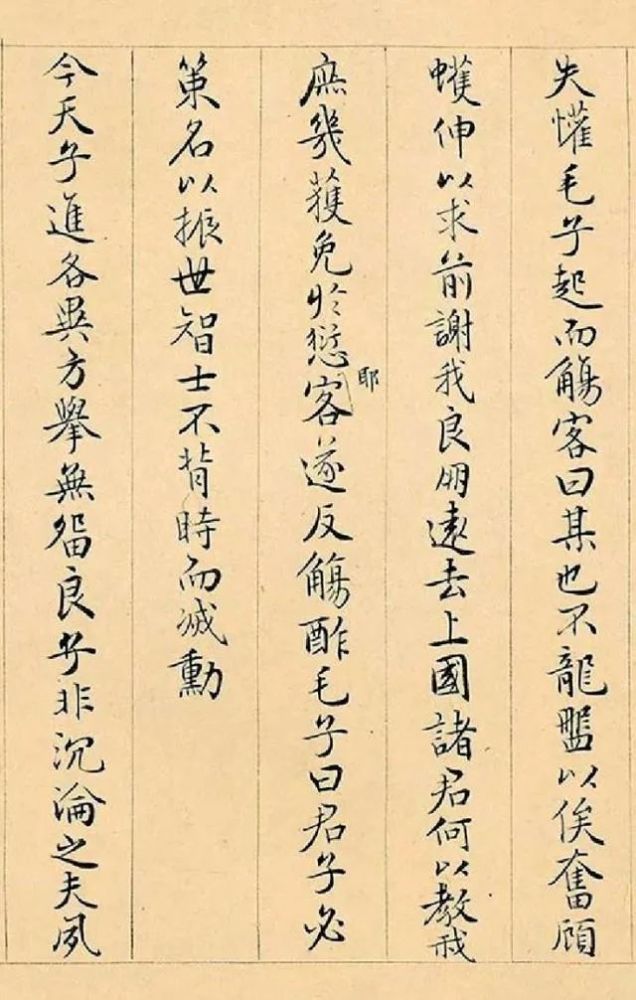 失懽毛子起而觴客曰某也不龍盤以俟奮顧
蠖伸以求前謝我良朋遠去上國諸君何以教我
庶幾獲免於愆耶客遂反觴酢毛子曰君子必
策名以振世智士不背時而滅勳
今天子進各異方舉無留良子非沉淪之夫夙